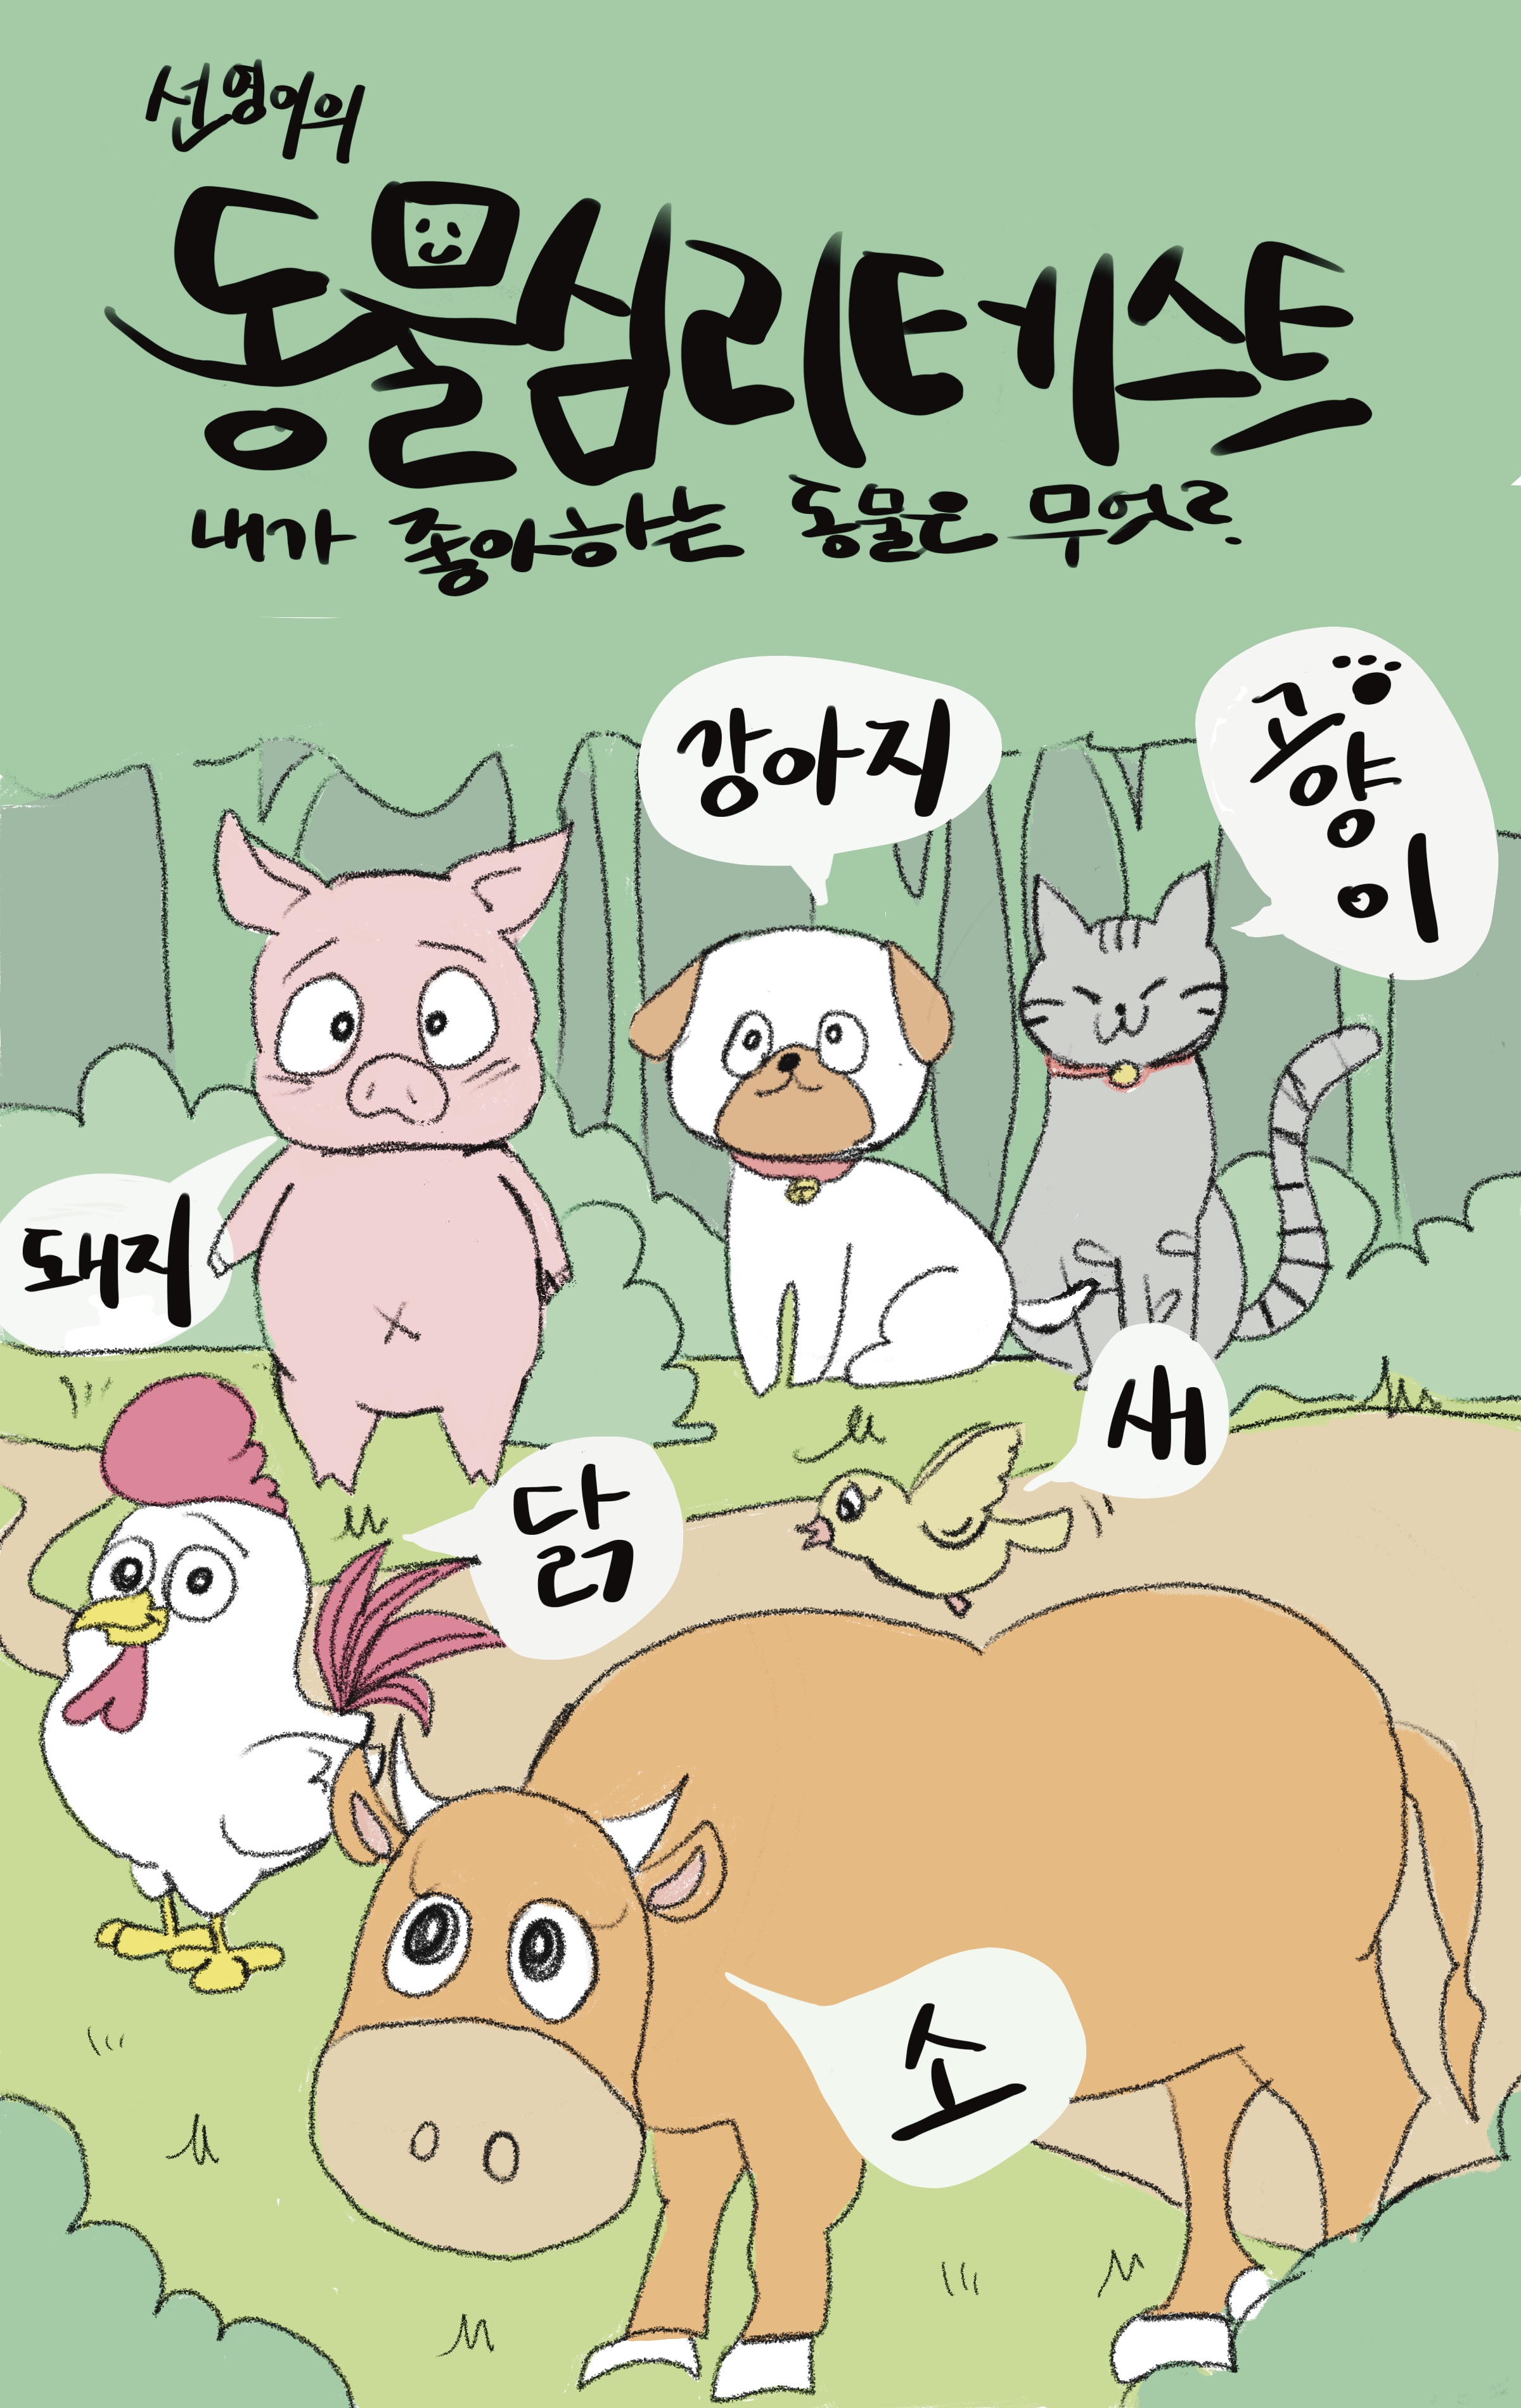 선영이의
동물심리테스트
내가 좋아하는 동물은 무엇?
강아지
고양이
돼지
새
닭
소